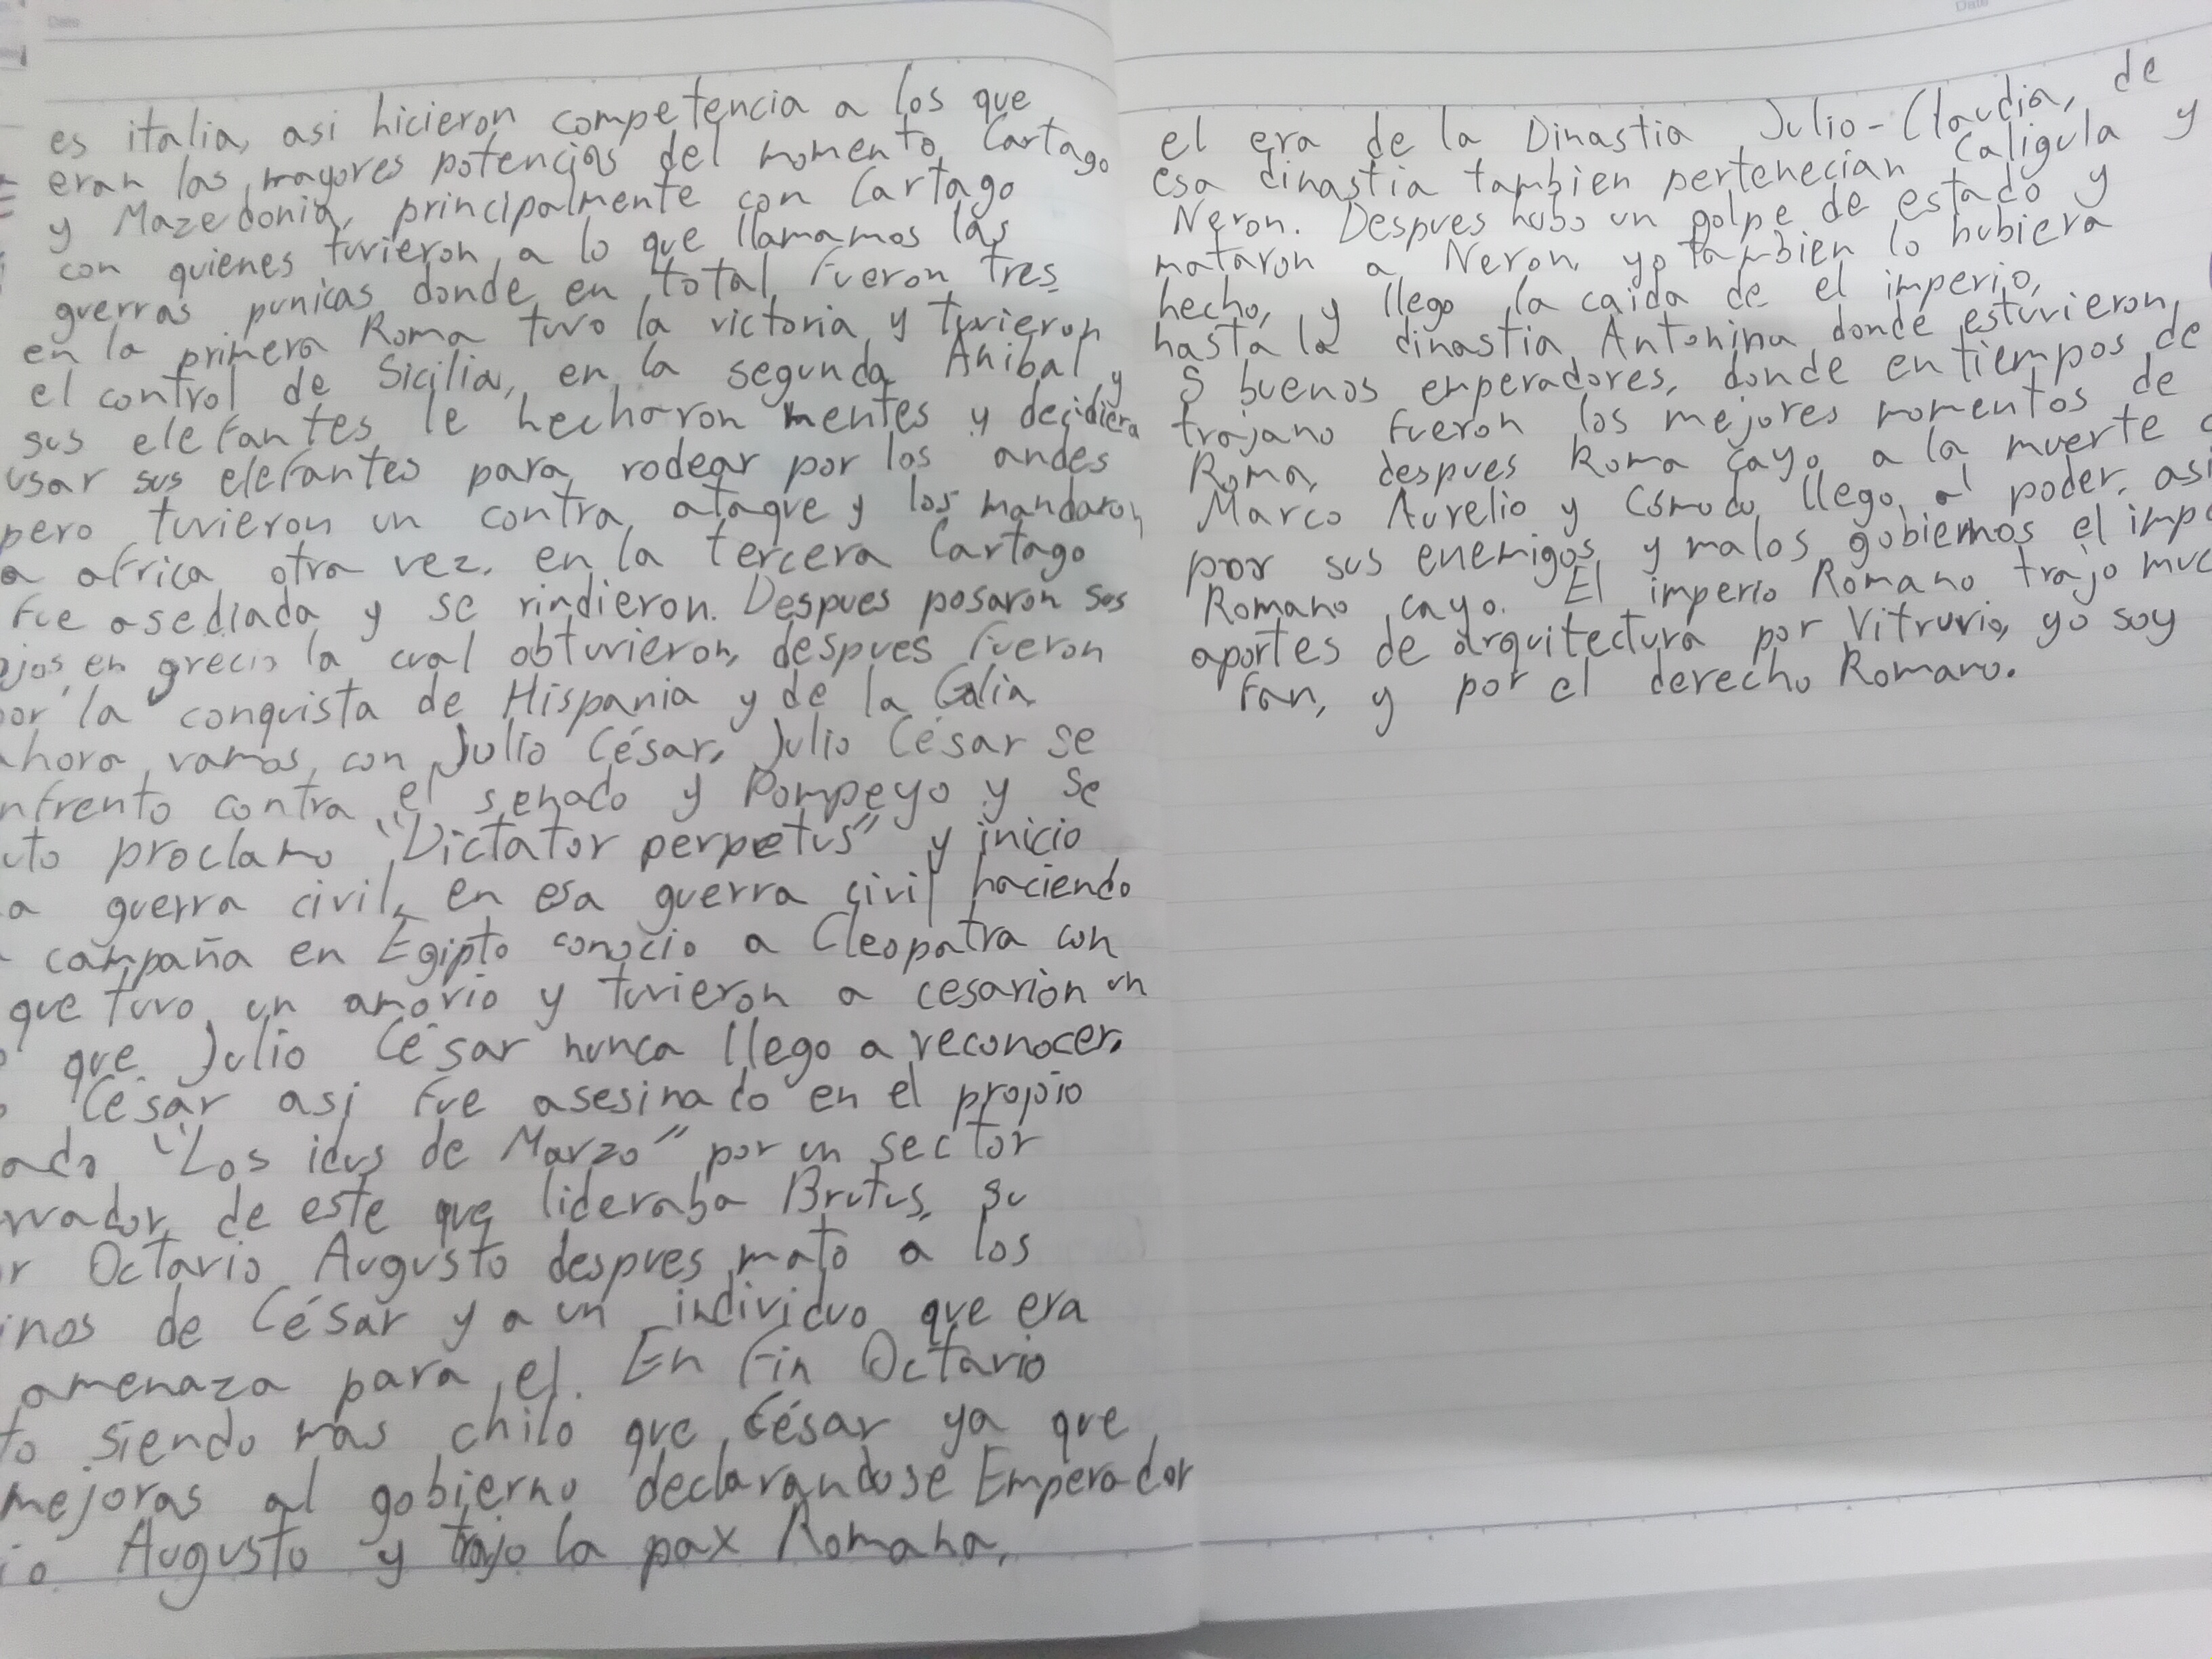 es italia, asi hicieron competencia a los que
eran las mayores potencias del momento, Cartago
y Mazedonia, principalmente con Cartago
con quienes tuvieron a lo que llamamos las
guerras punicas donde en total fueron tres
en la primera Roma tuvo la victoria y tuvieron
el control de Sicilia, en la segunda Anibal y
sus elefantes le hecharon mentes y decidiera
usar sus elefantes para rodear por los andes
pero tuvieron un contra ataque y los mandaron
a africa otra vez. en la tercera Cartago
fue asediada y se rindieron. Despues posaron sus
ojos en grecia la cual obtuvieron, despues fueron
por la conquista de Hispania y de la Galia
ahora vamos con Julio César. Julio César se
nfrento contra el senado y Pompeyo y se
uto proclamo "Dictator perpetus" y inicio
a guerra civil, en esa guerra civil haciendo
campaña en Egipto conocio a Cleopatra con
que tuvo un amorio y tuvieron a cesarion un
que Julio César nunca llego a reconocer.
César asi fue asesinado en el propio
ado "Los idus de Marzo" por un sector
rvador de este que lideraba Brutus, su
r Octavio Augusto despues mato a los
inos de César y a un individuo que era
amenaza para el. En fin Octavio
to siendo mas chilo que César ya que
mejoras al gobierno declarandose Emperador
io Augusto y trajo la pax Romana,
Date
el era de la Dinastia Julio-Claudia, de
esa dinastia tambien pertenecian Caligula y
Neron. Despues hubo un golpe de estado y
mataron a Neron, yo tambien lo hubiera
hecho, y llego la caida de el imperio,
hasta la dinastia Antonina donde estuvieron
5 buenos emperadores, donde en tiempos de
trajano fueron los mejores momentos de
Roma, despues Roma cayo a la muerte d
Marco Aurelio y Cómodo llego al poder, asi
por sus enemigos y malos gobiernos el impe
Romano cayo. El imperio Romano trajo muc
aportes de arquitectura por Vitruvio, yo soy
fan, y por el derecho Romano.